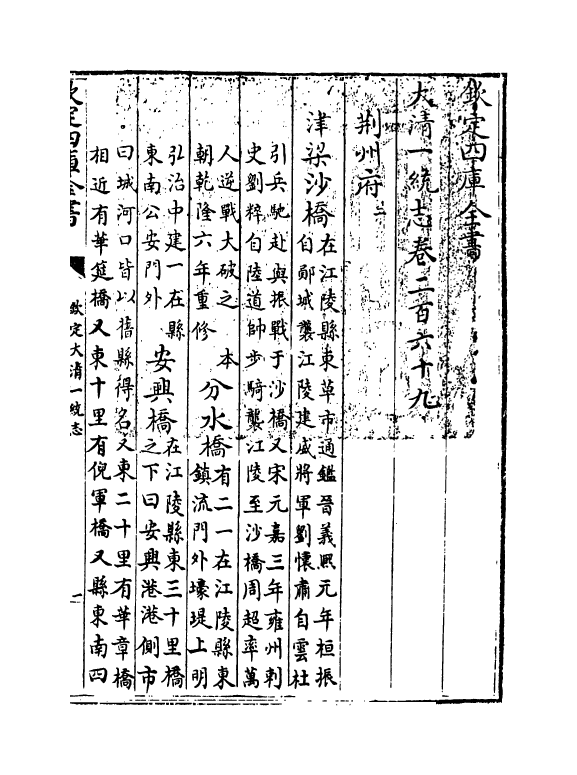 欽定四庫全書
大清一統志卷二百六十九
荆州府二
津梁沙橋在江陵縣東草市通鑑晉義熙元年桓振
自鄖城襲江陵建威將軍劉懷肅自雲杜
引兵馳赴與振戰于沙橋又宋元嘉三年雍州刺
史劉粹自陸道帥步騎襲江陵至沙橋周超率萬
人逆戰大破之 本
朝乾隆六年重修 分水橋有二一在江陵縣東
鎮流門外壕堤上明
弘治中建一在縣
東南公安門外 安興橋在江陵縣東三十里橋
之下曰安興港港側市
曰城河口皆以舊縣得名又東二十里有華章橋
相近有華筵橋又東十里有倪軍橋又縣東南四
欽定四庫全書
欽定大清一統志
一